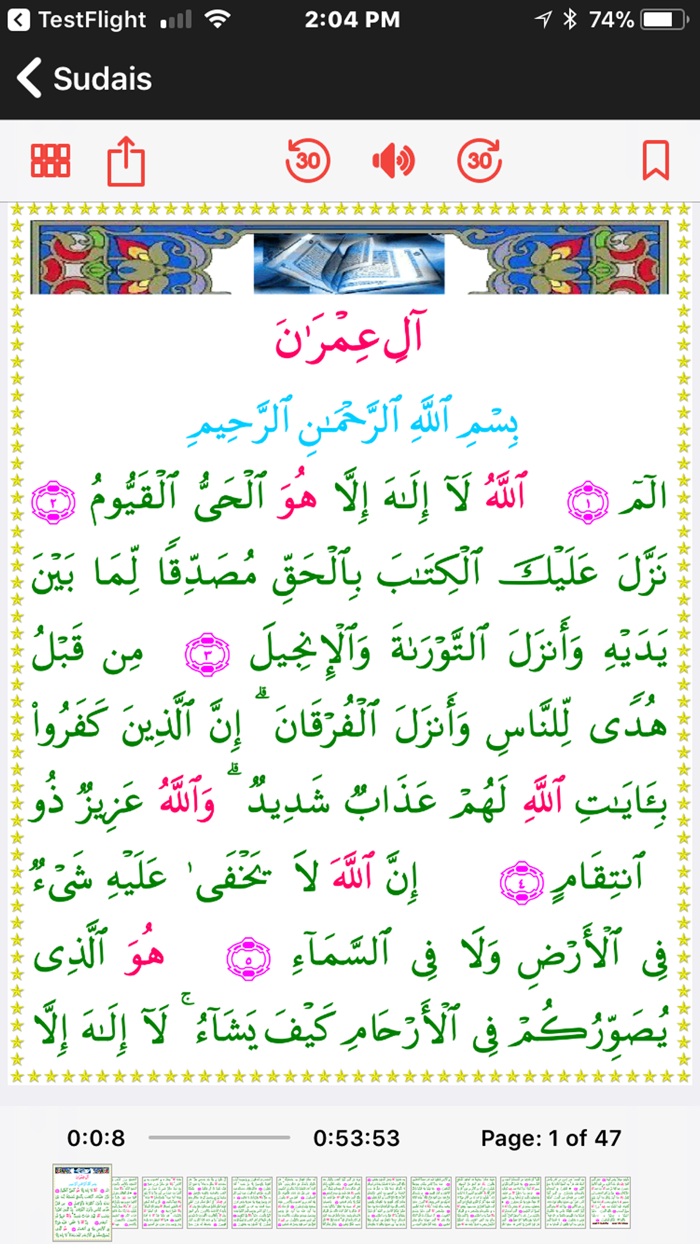 TestFlight 2:04 PM 74%
Sudais
30 30
آلِ عِمْرَٰنَ
بِسْمِ ٱللَّهِ ٱلرَّحْمَـٰنِ ٱلرَّحِيمِ
الٓمٓ ١ ٱللَّهُ لَآ إِلَـٰهَ إِلَّا هُوَ ٱلْحَىُّ ٱلْقَيُّومُ ٢
نَزَّلَ عَلَيْكَ ٱلْكِتَـٰبَ بِٱلْحَقِّ مُصَدِّقًا لِّمَا بَيْنَ
يَدَيْهِ وَأَنزَلَ ٱلتَّوْرَىٰةَ وَٱلْإِنجِيلَ ٣ مِن قَبْلُ
هُدًى لِّلنَّاسِ وَأَنزَلَ ٱلْفُرْقَانَ ۗ إِنَّ ٱلَّذِينَ كَفَرُوا۟
بِـَٔايَـٰتِ ٱللَّهِ لَهُمْ عَذَابٌ شَدِيدٌ ۗ وَٱللَّهُ عَزِيزٌ ذُو
ٱنتِقَامٍ ٤ إِنَّ ٱللَّهَ لَا يَخْفَىٰ عَلَيْهِ شَىْءٌ
فِى ٱلْأَرْضِ وَلَا فِى ٱلسَّمَآءِ ٥ هُوَ ٱلَّذِى
يُصَوِّرُكُمْ فِى ٱلْأَرْحَامِ كَيْفَ يَشَآءُ ۚ لَآ إِلَـٰهَ إِلَّا
0:0:8 0:53:53 Page: 1 of 47